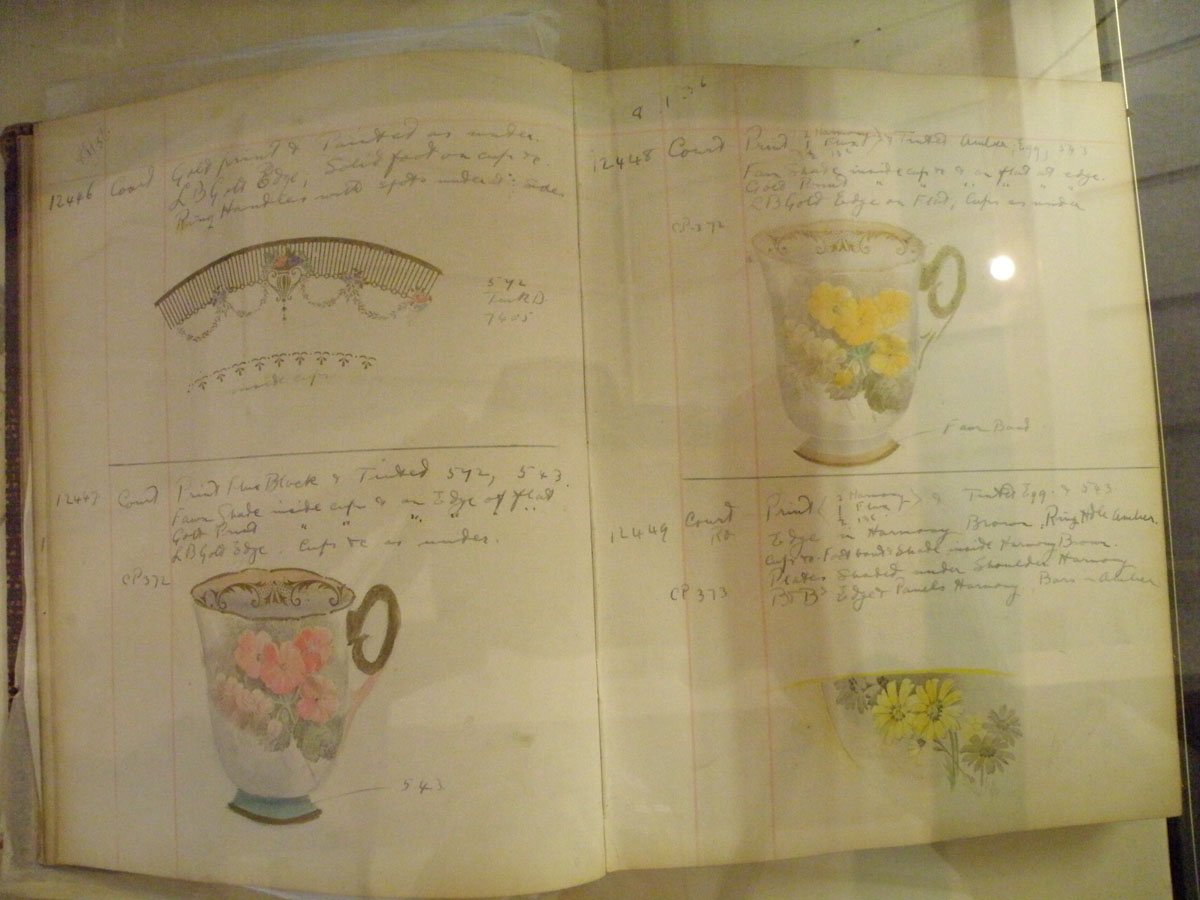 Gold print & Tinted as under.
12446 Court L B Gold Edge, Solid foot on cups &c
Ring Handles with spots sides
572
Tint
7605
inside cup
12447 Court Print Flux Black & Tinted 572, 543.
Fawn Shade inside cups & on Edge of flat
Gold Print " " " " "
L B Gold Edge. Cups &c as under.
CP 372
543
12448 Court Print 2 Harmony 1 Flux & Tinted Amber, Egg, 543
Fawn shade inside cups & on flat at edge.
Gold Print " " " " "
L B Gold Edge on Flat, Cups as under
CP 372
Fawn Band
12449 Court Print 2 Harmony 1 Flux & Tinted Egg. & 543
Edge in Harmony Brown, Ring Hdle Amber.
Cups Foot band & Shade inside Harmony Brown.
Plates Shaded under Shoulder Harmony
CP 373 B & B Edge & Panels Harmony Bars Amber